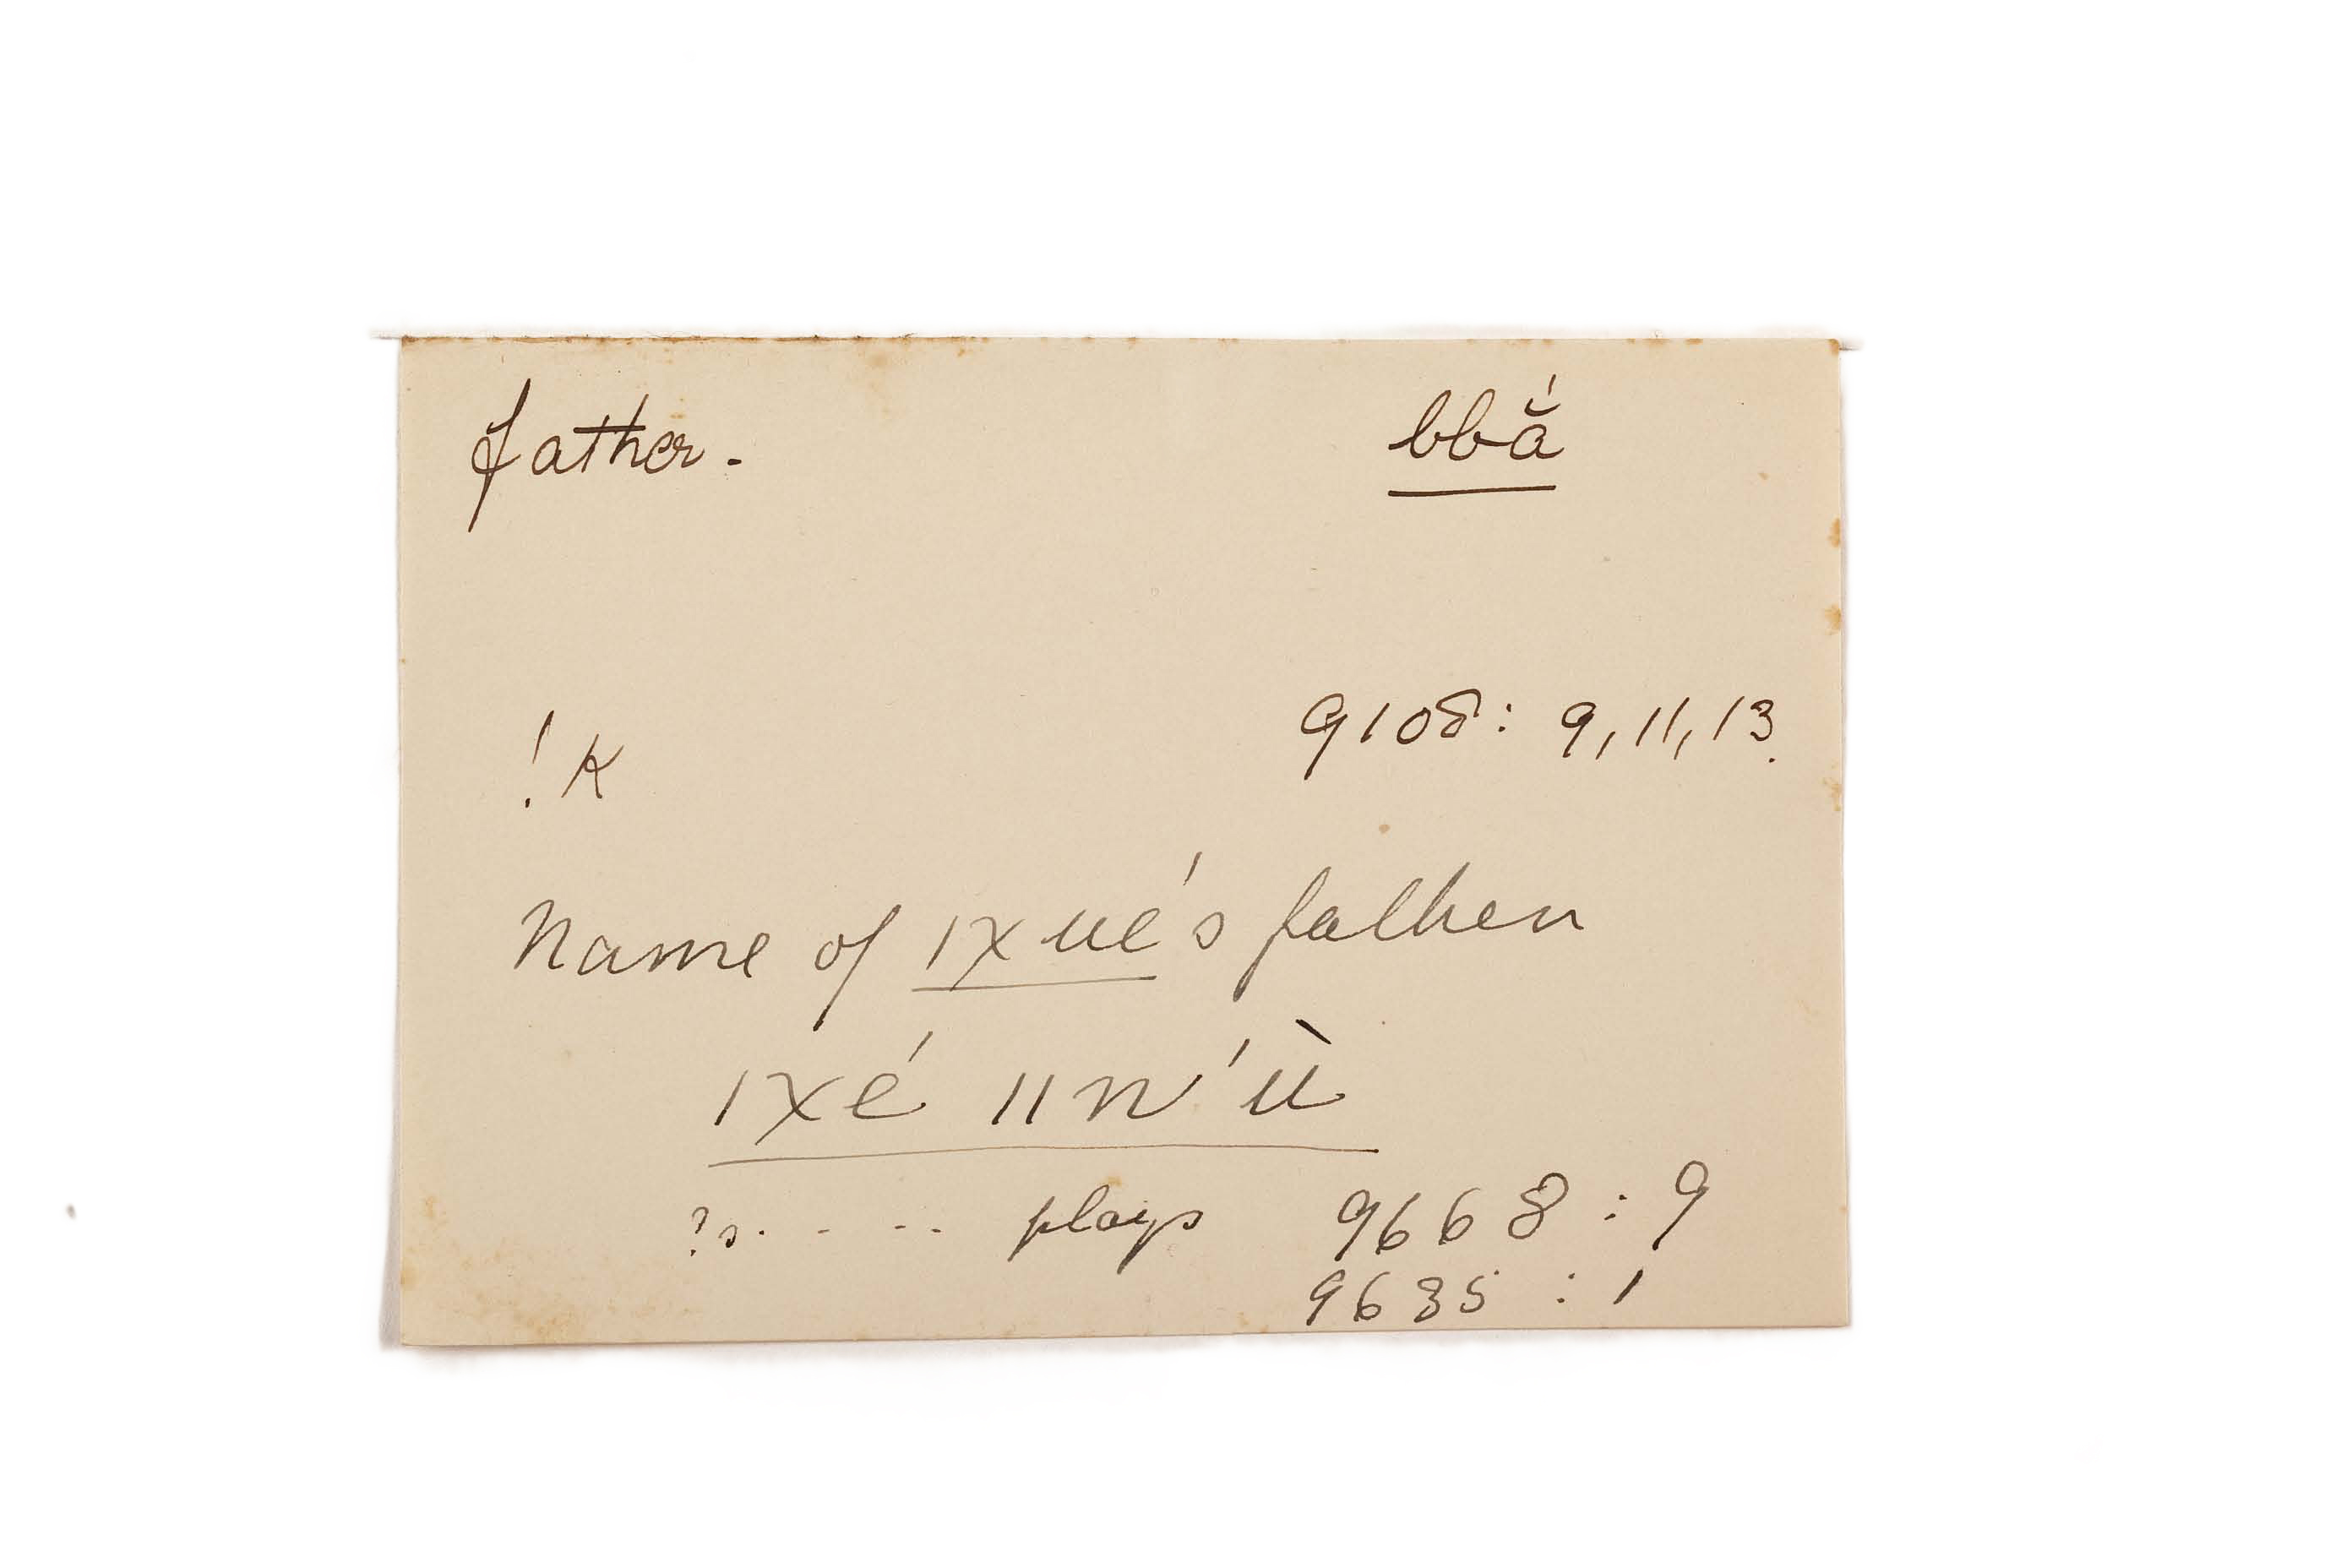 father. bbắ
!k 9108: 9, 11, 13.
Name of |χué's father
|χé ||n'ù
?s. - - - plays 9668 : 9
9635 : 1